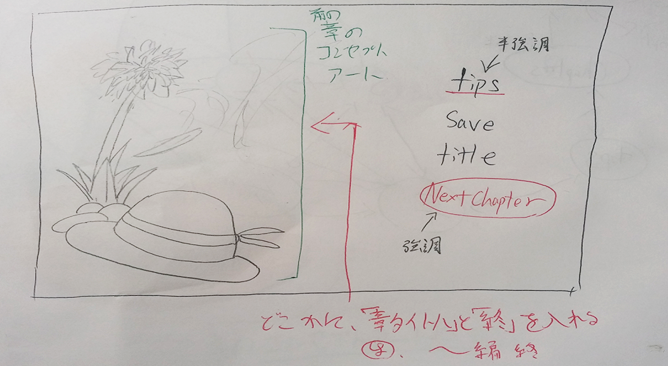 前の
章の
コンセプト
アート
半強調
tips
Save
title
Next Chapter
強調
どこかに、「章タイトル」と「終」を入れる
〜編 終